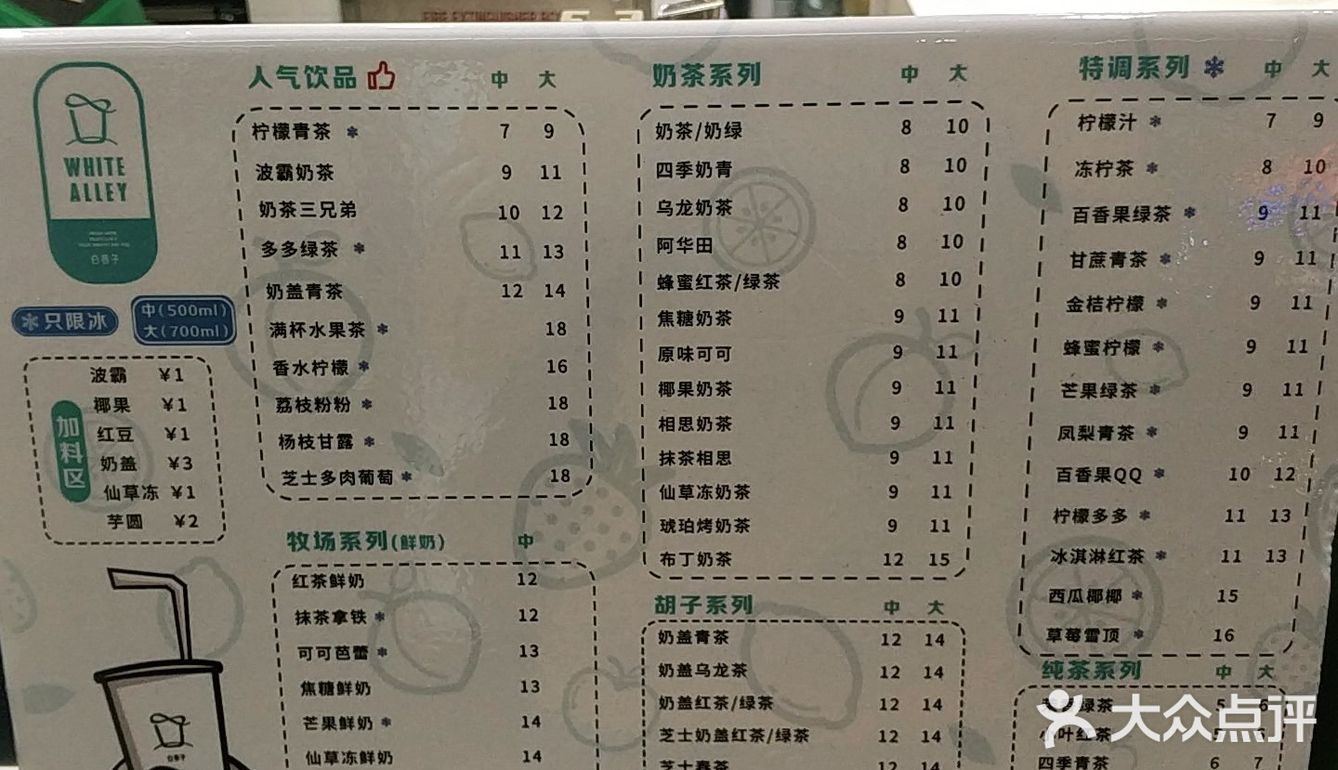 FIRE EXTINGUISHER
WHITE
ALLEY
白巷子
只限冰
中(500ml)
大(700ml)
加料区
波霸 ¥1
椰果 ¥1
红豆 ¥1
奶盖 ¥3
仙草冻 ¥1
芋圆 ¥2
人气饮品 中 大
柠檬青茶 7 9
波霸奶茶 9 11
奶茶三兄弟 10 12
多多绿茶 11 13
奶盖青茶 12 14
满杯水果茶 18
香水柠檬 16
荔枝粉粉 18
杨枝甘露 18
芝士多肉葡萄 18
牧场系列(鲜奶) 中
红茶鲜奶 12
抹茶拿铁 12
可可芭蕾 13
焦糖鲜奶 13
芒果鲜奶 14
仙草冻鲜奶 14
奶茶系列 中 大
奶茶/奶绿 8 10
四季奶青 8 10
乌龙奶茶 8 10
阿华田 8 10
蜂蜜红茶/绿茶 8 10
焦糖奶茶 9 11
原味可可 9 11
椰果奶茶 9 11
相思奶茶 9 11
抹茶相思 9 11
仙草冻奶茶 9 11
琥珀烤奶茶 9 11
布丁奶茶 12 15
胡子系列 中 大
奶盖青茶 12 14
奶盖乌龙茶 12 14
奶盖红茶/绿茶 12 14
芝士奶盖红茶/绿茶 12 14
芝士春茶 12 14
特调系列 中 大
柠檬汁 7 9
冻柠茶 8 10
百香果绿茶 9 11
甘蔗青茶 9 11
金桔柠檬 9 11
蜂蜜柠檬 9 11
芒果绿茶 9 11
凤梨青茶 9 11
百香果QQ 10 12
柠檬多多 11 13
冰淇淋红茶 11 13
西瓜椰椰 15
草莓雪顶 16
纯茶系列 中 大
绿茶 5 6
叶红茶
四季青茶 6 7
大众点评